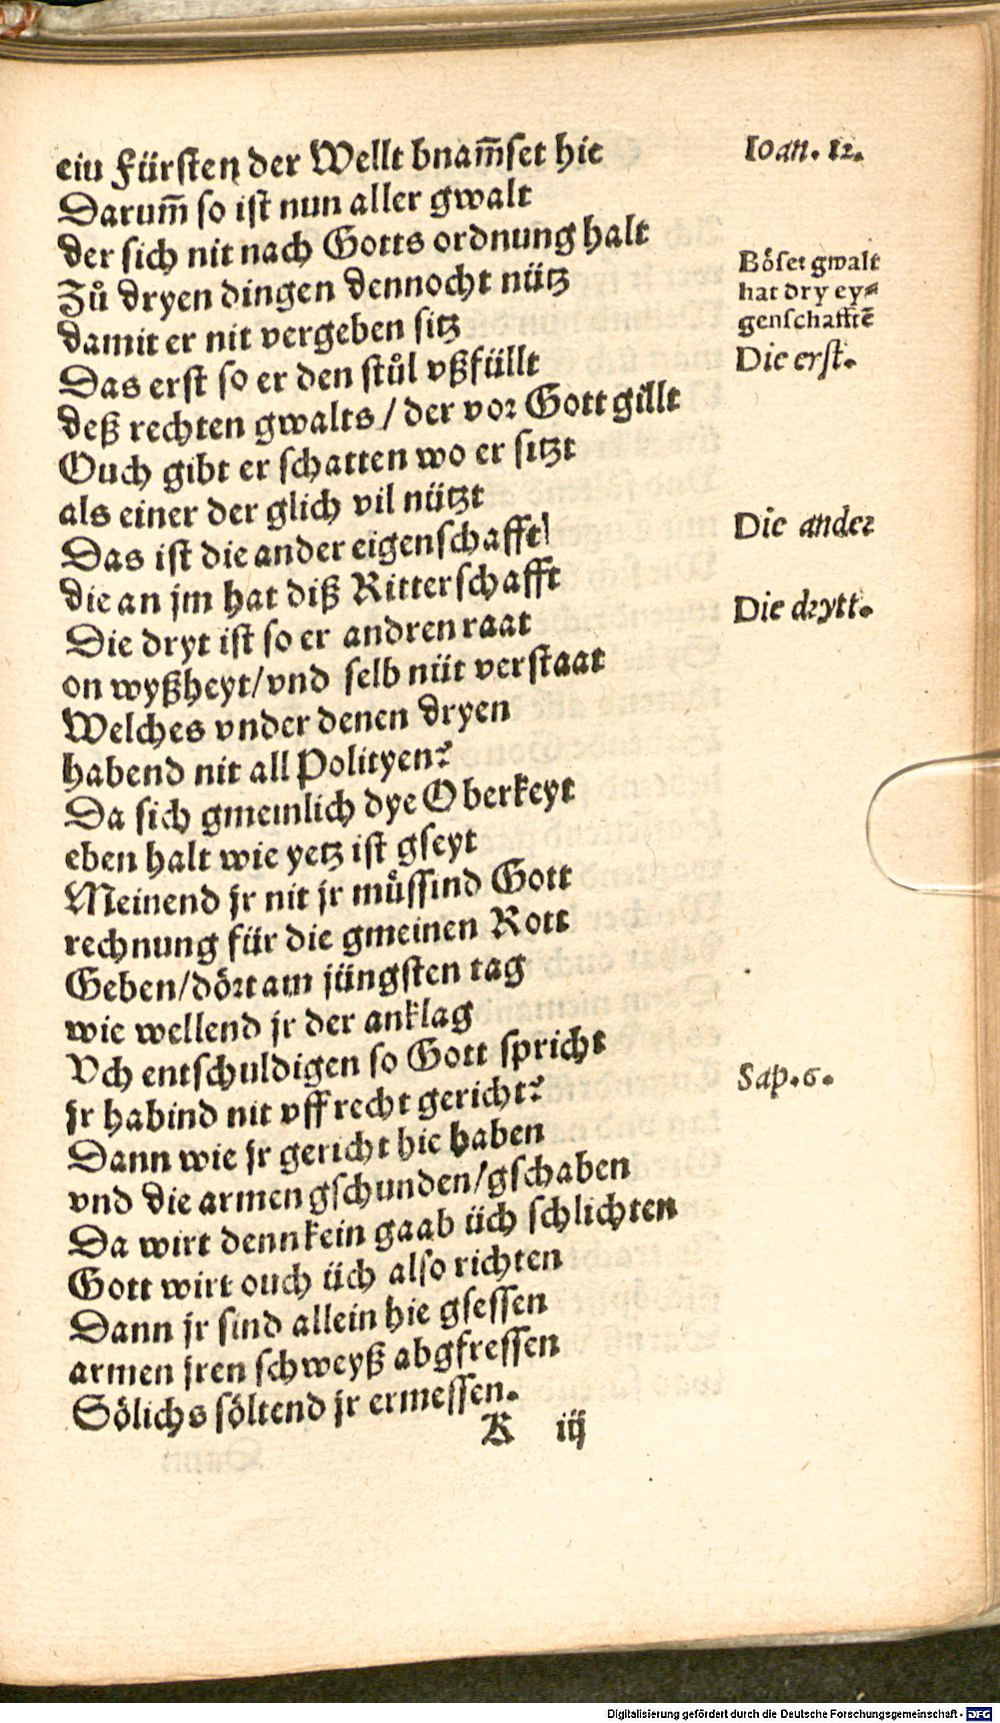 ein Fürsten der Wellt bnam̃set hie
Ioan. 12.
Darum̃ so ist nun aller gwalt
der sich nit nach Gotts ordnung halt
Böser gwalt
Zů dryen dingen dennocht nütz
hat dry ey⸗
damit er nit vergeben sitz
genschafftẽ
Das erst so er den stůl vßfüllt
Die erst.
deß rechten gwalts / der vor Gott gillt
Ouch gibt er schatten wo er sitzt
als einer der glich vil nützt
Das ist die ander eigenschafft
Die ander
die an jm hat diß Ritterschafft
Die dryt ist so er andren raat
Die drytt.
on wyßheyt/vnd selb nüt verstaat
Welches vnder denen dryen
habend nit all Polityen?
Da sich gmeinlich dye Oberkeyt
eben halt wie yetz ist gseyt
Meinend jr nit jr můssind Gott
rechnung für die gmeinen Rott
Geben/dört am jüngsten tag
wie wellend jr der anklag
Vch entschuldigen so Gott spricht
jr habind nit vff recht gericht?
Sap. 6.
Dann wie jr gericht hie haben
vnd die armen gschunden/gschaben
Da wirt denn kein gaab üch schlichten
Gott wirt ouch üch also richten
Dann jr sind allein hie gsessen
armen jren schweyß abgfressen
Sölichs söltend jr ermessen.
K iij
Digitalisierung gefördert durch die Deutsche Forschungsgemeinschaft - DFG